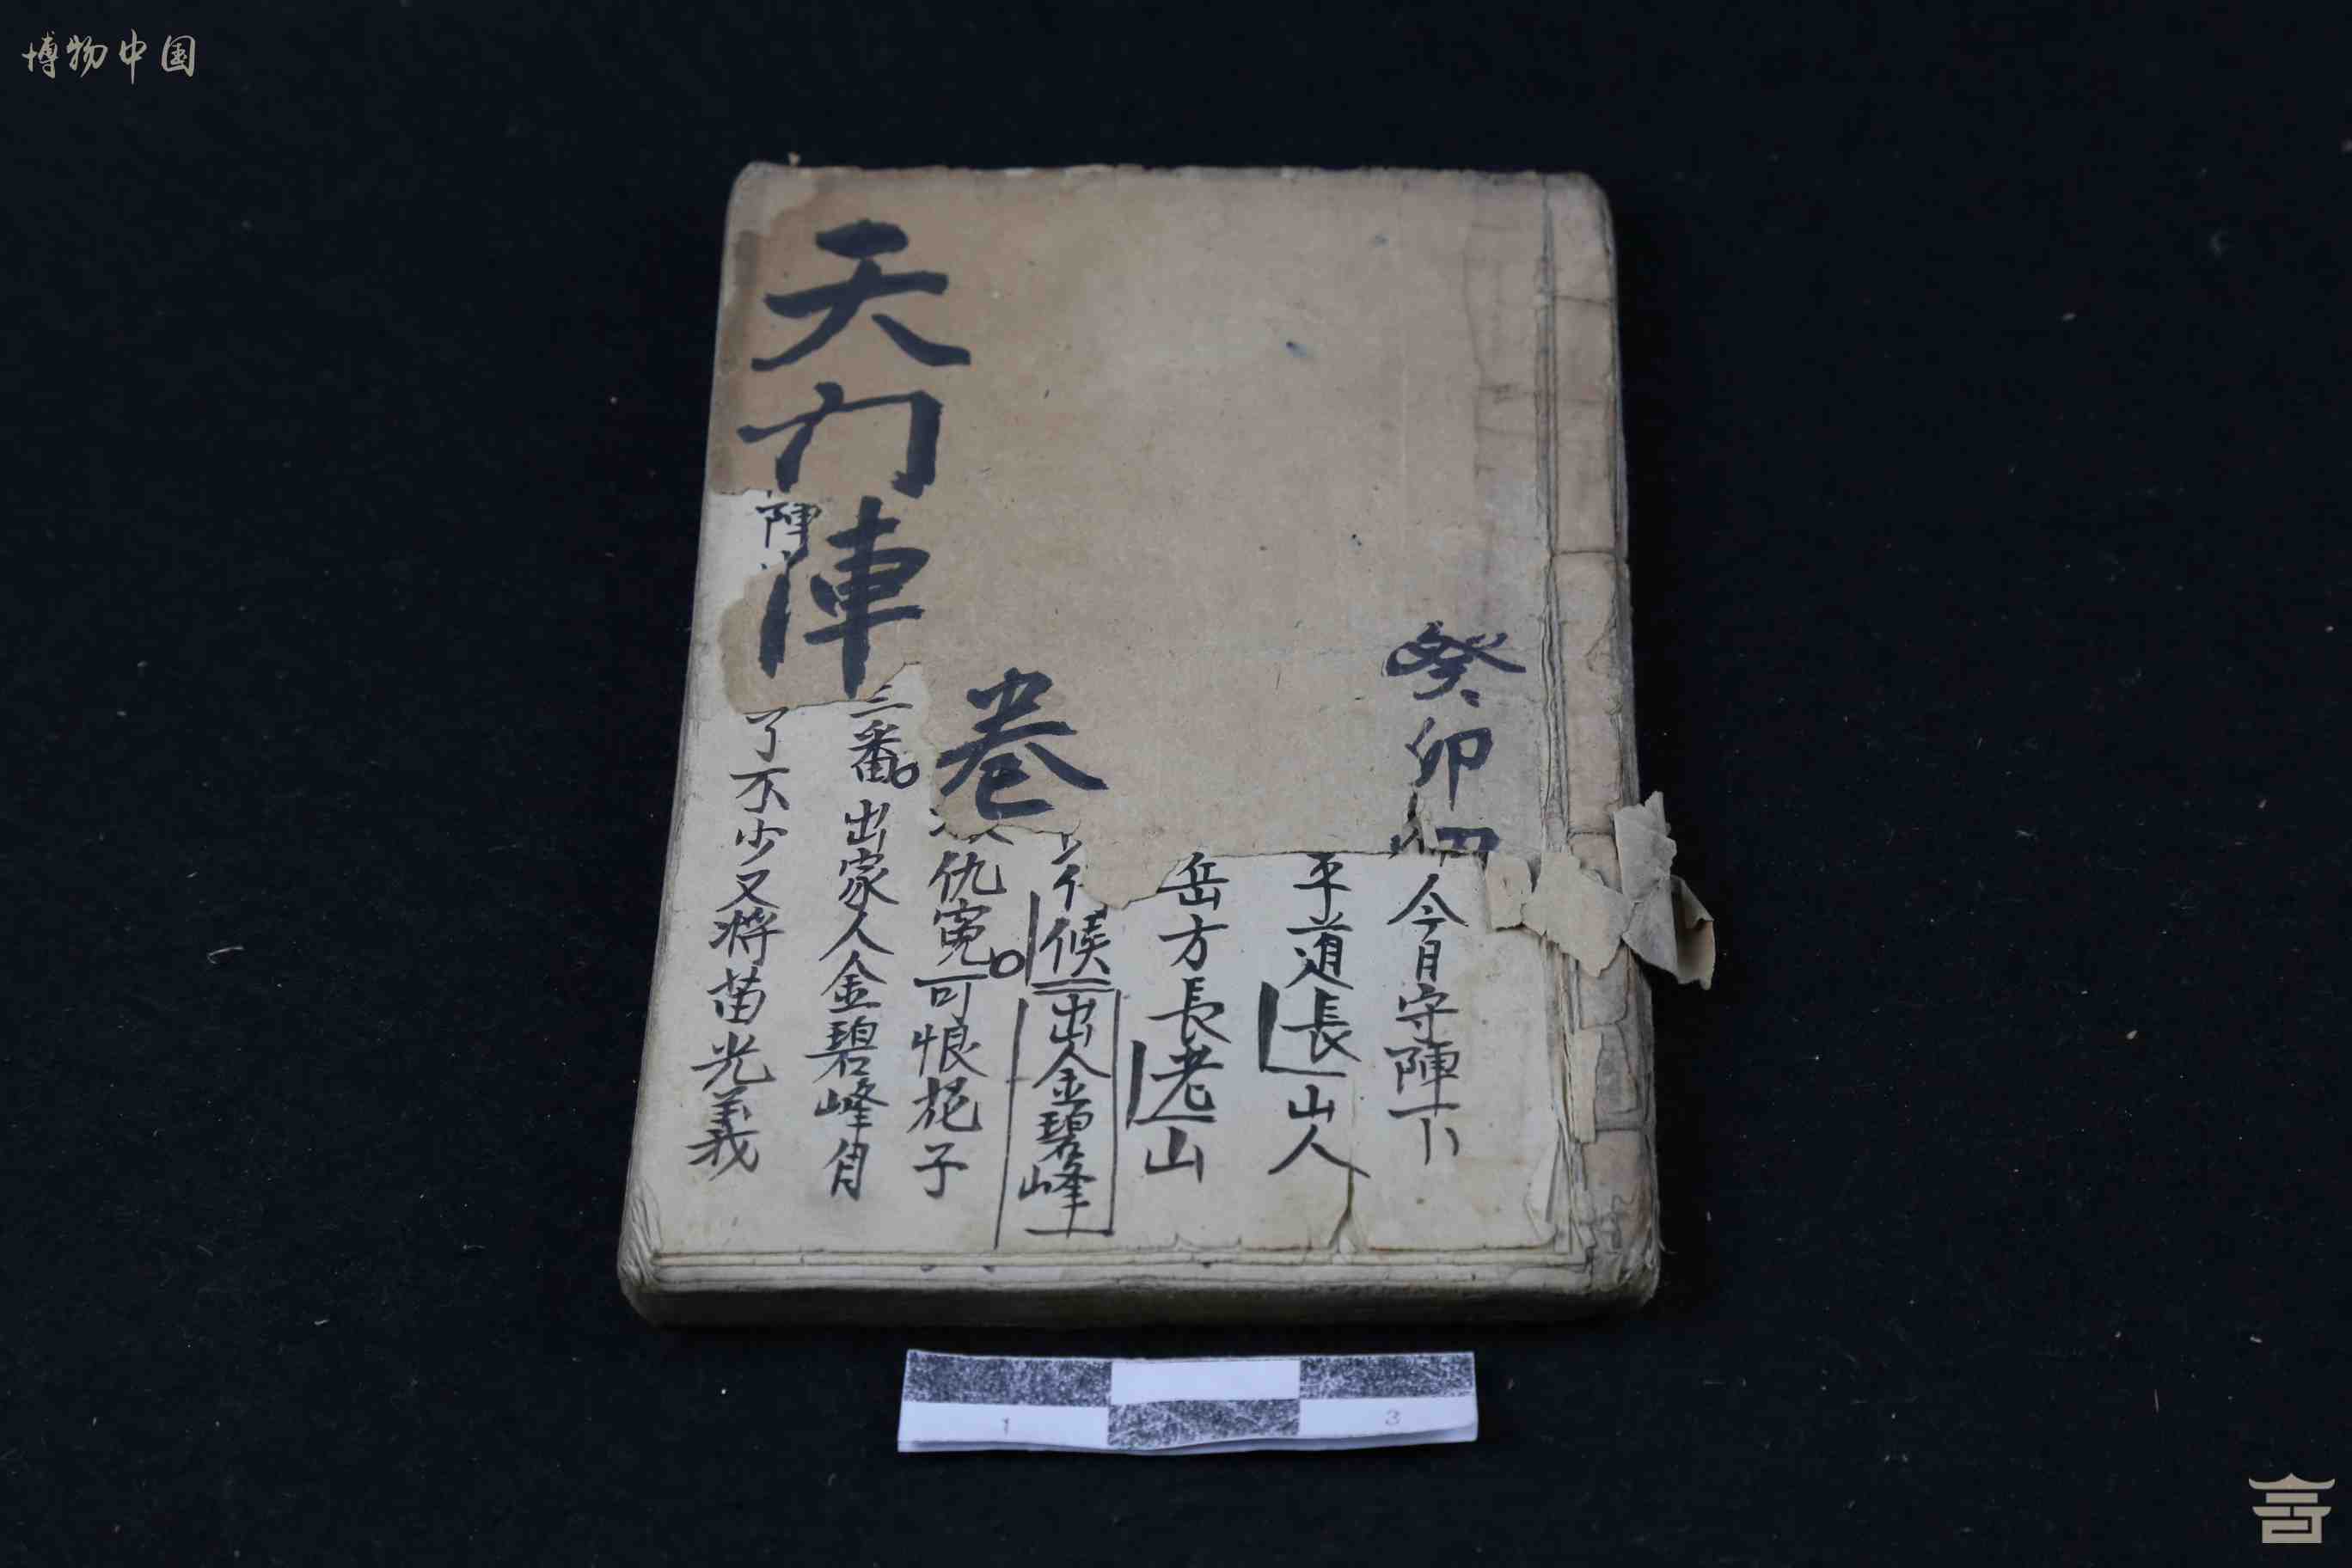 博物中国
天门陣
卷
癸卯
今日守陣下
平道長山人
岳方長老山
候出金碧峰
仇寃可恨
子
三番出家人金碧峰自
陣
了不少又將苗光義
1
3